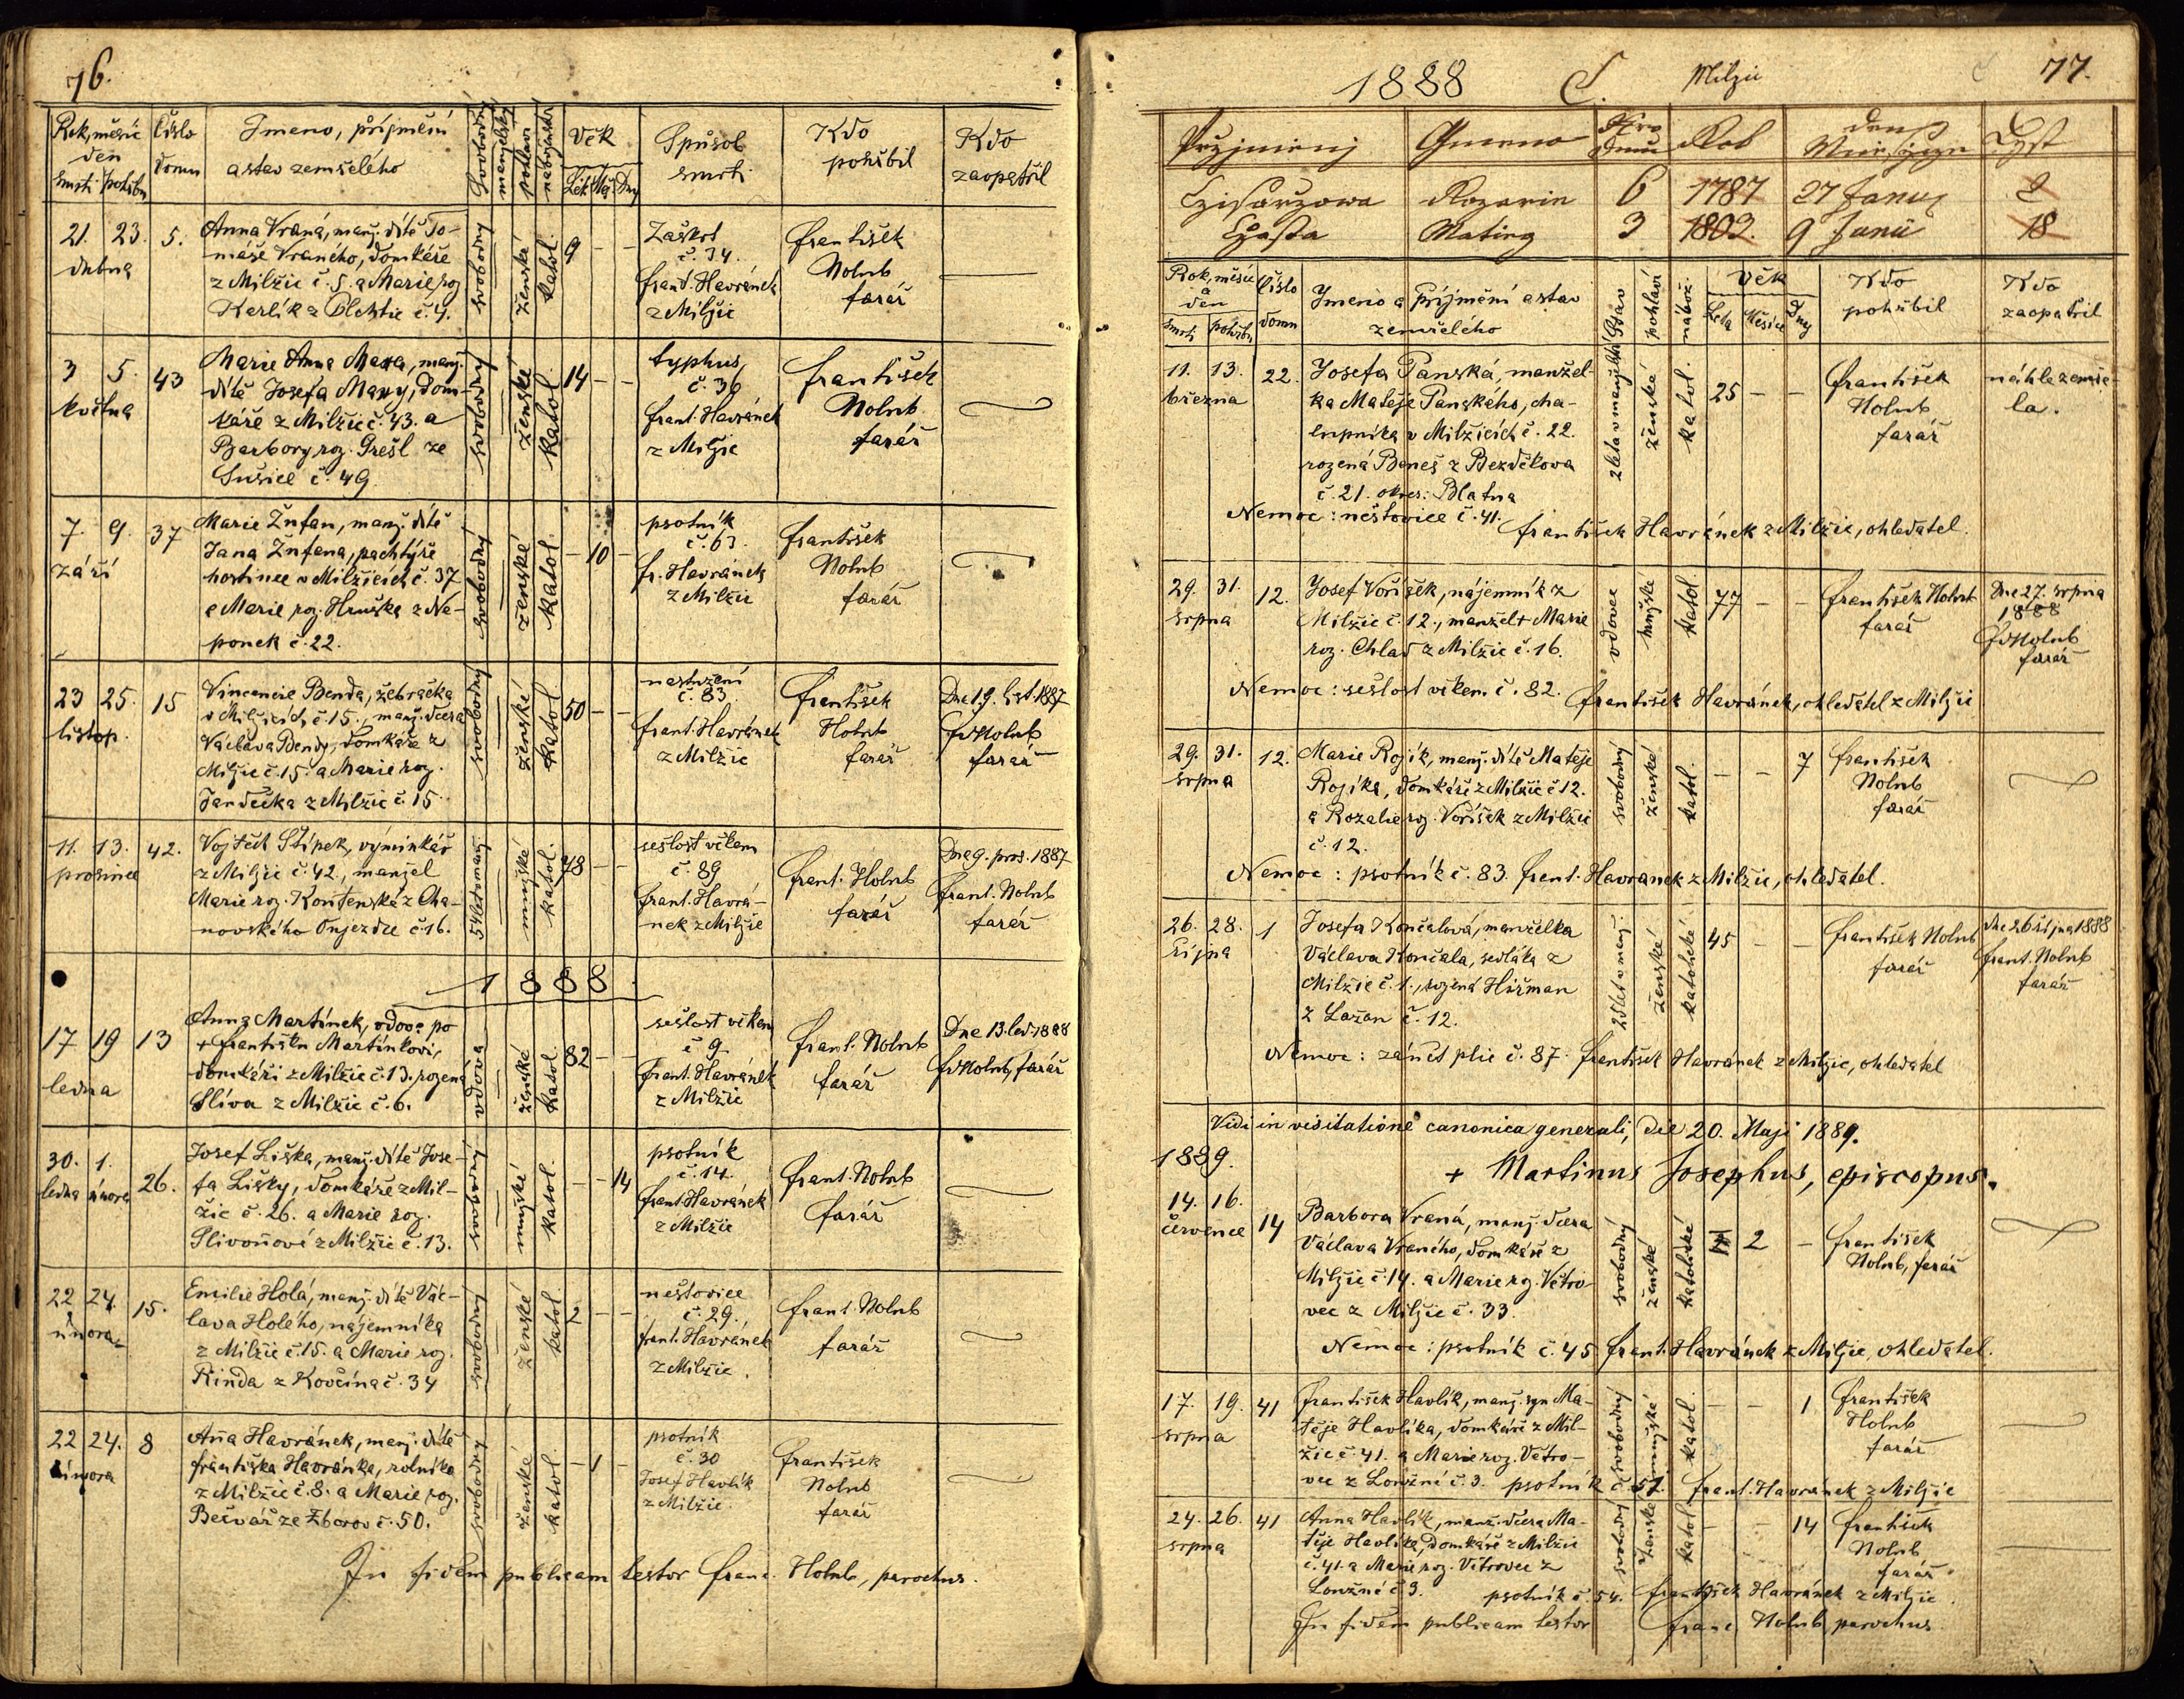 76.
Rok, měsíc
den
smrti pohřbu
Číslo
domu
Jmeno, příjmění
a stav zemřelého
Svobodný
manželský
pohlaví
náboženství
Věk
Lét Měs. Dny
Spůsob
smrti
Kdo
pohřbil
Kdo
zaopatřil
21. 23. 5.
dubna
Anna Vraná, manž. dítě To-
máše Vraného, domkáře
z Milžic č. 5. a Marie roz
Karlík z č. 4.
svobodný
ženské
katol.
9 – –
Záškrt
č. 34.
frant. Havránek
z Milžic
František
Holub
farář
3 5. 43
května
Marie Anna Maxa, manž.
dítě Josefa Maxy, dom-
káře z Milžic č. 43. a
Barbory roz. Grešl ze
Sušice č. 49.
svobodný
ženské
katol.
14 – –
typhus
č. 36
frant. Havránek
z Milžic
František
Holub
farář
7. 9. 37
září
Marie Žufan, manž. dítě
Jana Žufana, pachtýře
hostince v Milžicích č. 37
a Marie roz. Hruška z Ne-
ponek č. 22.
svobodný
ženské
katol.
– 10 –
psotník
č. 63.
fr. Havránek
z Milžic
František
Holub
farář
23 25. 15
listop.
Vincencie Benda, žebračka
v Milžicích č. 15., manž. dcera
Václava Bendy, domkáře z
Milžic č. 15. a Marie roz.
Jandečka z Milžic č. 15.
svobodný
ženské
katol
50 – –
nastuzení
č. 83
frant. Havránek
z Milžic
František
Holub
farář
Dne 19. list. 1887
Fr Holub
farář
11. 13. 42.
prosince
Vojtěch Štípek, výminkář
z Milžic č. 42., manžel
Marie roz. Kortenská z Cha-
novského Onjezdce č. 16.
54 let v manž.
mužské
katol.
78 – –
sešlost věkem
č. 89
frant. Havrá-
nek z Milžic
frant. Holub
farář
Dne 9. pros. 1887
frant. Holub
farář
1888
17 19 13
ledna
Anna Martínek, vdova po
+ Františku Martínkovi,
domkáři z Milžic č. 13. rozená
Slíva z Milžic č. 6.
vdova
ženské
katol.
82 – –
sešlost věkem
č. 9
frant. Havránek
z Milžic
frant. Holub
farář
Dne 13. led. 1888
Fr Holub, farář
30. 1. 26.
ledna února
Josef Liška, manž. dítě Jose-
fa Lišky, domkáře z Mil-
žic č. 26. a Marie roz.
Slivoňové z Milžic č. 13.
svobodný
mužské
katol.
– – 14
psotník
č. 14.
frant. Havránek
z Milžic
frant. Holub
farář
22 24. 15.
února
Emilie Holá, manž. dítě Vác-
lava Holého, nájemníka
z Milžic č. 15. a Marie roz.
Rinda z Kovčína č. 34
svobodný
ženské
katol
2 – –
neštovice
č. 29.
frant. Havránek
z Milžic.
frant. Holub
farář
22 24. 8
února
Anna Havránek, manž. dítě
františka Havránka, rolníka
z Milžic č. 8. a Marie roz.
Bečvář ze Zborov č. 50.
svobodný
ženské
katol.
– 1 –
psotník
č. 30
Josef Havlík
z Milžic.
František
Holub
farář
In fidem publicam testor Franc. Holub, parochus.
1888 C. Milžic 77.
Przjmienj Gmeno Nro domu Rok den Miesycze Lyst
Czisarzowa Rozarin 6 1787 27 Januj 2
Czasta Mating 3 1803. 9 Junii 18
Rok, měsíc
a
den
smrti pohřbu
Číslo
domu
Jmeno a příjmění a stav
zemřelého
Stav
pohlaví
nábož.
Věk
Léta Měsíce Dny
Kdo
pohřbil
Kdo
zaopatřil
11. 13. 22.
března
Josefa Panská, manžel-
ka Matěje Panského, cha-
lupníka v Milžicích č. 22.
rozená Beneš z Bezděkova
č. 21. okres: Blatna
2 léta v manželství
ženské
katol.
25 – –
František
Holub,
farář
náhle zemře-
la.
Nemoc: neštovice č. 41. František Havránek z Milžic, ohledatel.
29. 31. 12.
srpna
Josef Voříšek, nájemník z
Milžic č. 12., manžel + Marie
roz. Chlad z Milžic č. 16.
vdovec
mužské
katol.
77 – –
František Holub
farář
Dne 27. srpna
1888
Fr Holub
farář
Nemoc: sešlost věkem č. 82. František Havránek, ohledatel z Milžic
29. 31. 12.
srpna
Marie Rojík, manž. dítě Matěje
Rojíka, domkáře z Milžic č. 12.
a Rozalie roz. Voříšek z Milžic
č. 12.
svobodný
ženské
katol.
– – 7
František
Holub
farář
Nemoc: psotník č. 83. frant. Havránek z Milžic, ohledatel.
26. 28. 1
října
Josefa Končalová, manželka
Václava Končala, sedláka z
Milžic č. 1., rozená Hiřman
z Lažan č. 12.
25 let v manž.
ženské
katolické
45 – –
František Holub
farář
dne 26 října 1888
frant. Holub
farář
Nemoc: zánět plic č. 87. František Havránek z Milžic, ohledatel
Vidi in visitatione canonica generali, die 20. Maji 1889.
+ Martinus Josephus, episcopus.
1889.
14. 16. 14
července
Barbora Vraná, manž. dcera
Václava Vraného, domkáře z
Milžic č. 14. a Marie roz. Větro-
vec z Milžic č. 33.
svobodný
ženské
katolické
2 –
František
Holub, farář
Nemoc: psotník č. 45 frant. Havránek z Milžic, ohledatel.
17. 19. 41
srpna
František Havlík, manž. syn Ma-
těje Havlíka, domkáře z Mil-
žic č. 41. a Marie roz. Větro-
vec z Loužné č. 3. psotník č. 51. frant. Havránek z Milžic
svobodný
mužské
katol.
– – 1
František
Holub
farář
24. 26. 41
srpna
Anna Havlík, manž. dcera Ma-
těje Havlíka, domkáře z Milžic
č. 41. a Marie roz. Větrovec z
Loužné č. 3. psotník č. 54. František Havránek z Milžic.
svobodný
ženské
katol.
– – 14
František
Holub
farář
In fidem publicam testor Franc Holub, parochus.